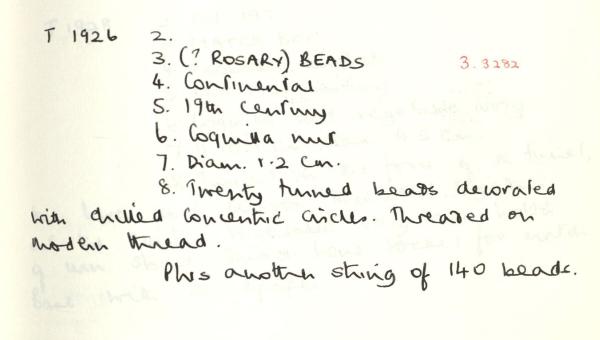 T 1926 2.
3. (? ROSARY) BEADS 3.3282
4. Continental
5. 19th Century
6. Coquilla nut
7. Diam. 1.2 cm.
8. Twenty turned beads decorated
with drilled concentric circles. Threaded on
modern thread.
Plus another string of 140 beads.